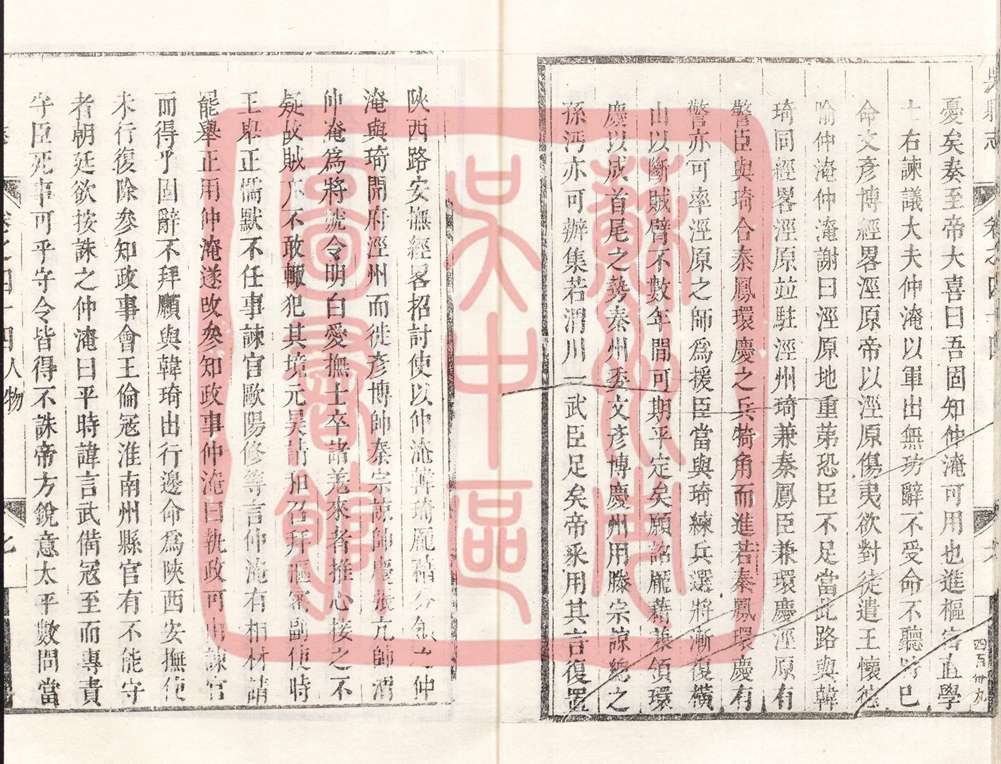 憂矣奏至帝大喜曰吾固知仲淹可用也進樞密直學
士右諫議大夫仲淹以軍出無功辭不受命不聽時已
命文彥博經畧涇原帝以涇原傷夷欲對徙遣王懷德
喻仲淹仲淹謝曰涇原地重第恐臣不足當此路與韓
琦同經畧涇原並駐涇州琦兼秦鳳臣兼環慶涇原有
警臣與琦合秦鳳環慶之兵犄角而進若秦鳳環慶有
警亦可率涇原之師爲援臣當與琦練兵選將漸復橫
山以斷賊臂不數年間可期平定矣願詔龐藉兼領環
慶以成首尾之勢秦州委文彥博慶州用滕宗諒總之
孫沔亦可辦集若渭川一武臣足矣帝采用其言復置
陝西路安撫經畧招討使以仲淹韓琦龐藉分領之仲
淹與琦開府涇州而徙彥博帥秦宗諒帥慶張亢帥渭
仲淹爲將號令明白愛撫士卒諸羌來者推心接之不
疑故賊亦不敢輒犯其境元昊請和召拜樞密副使時
王舉正懦默不任事諫官歐陽修等言仲淹有相材請
罷舉正用仲淹遂改參知政事仲淹曰執政可由諫官
而得乎固辭不拜願與韓琦出行邊命爲陝西安撫使
未行復除參知政事會王倫寇淮南州縣官有不能守
者朝廷欲按誅之仲淹曰平時諱言武備寇至而專責
守臣死事可乎守令皆得不誅帝方銳意太平數問當
吳縣志
卷之四十四
四百卅九
卷之四十四人物
七
蘇州市
吳中區
圖書館